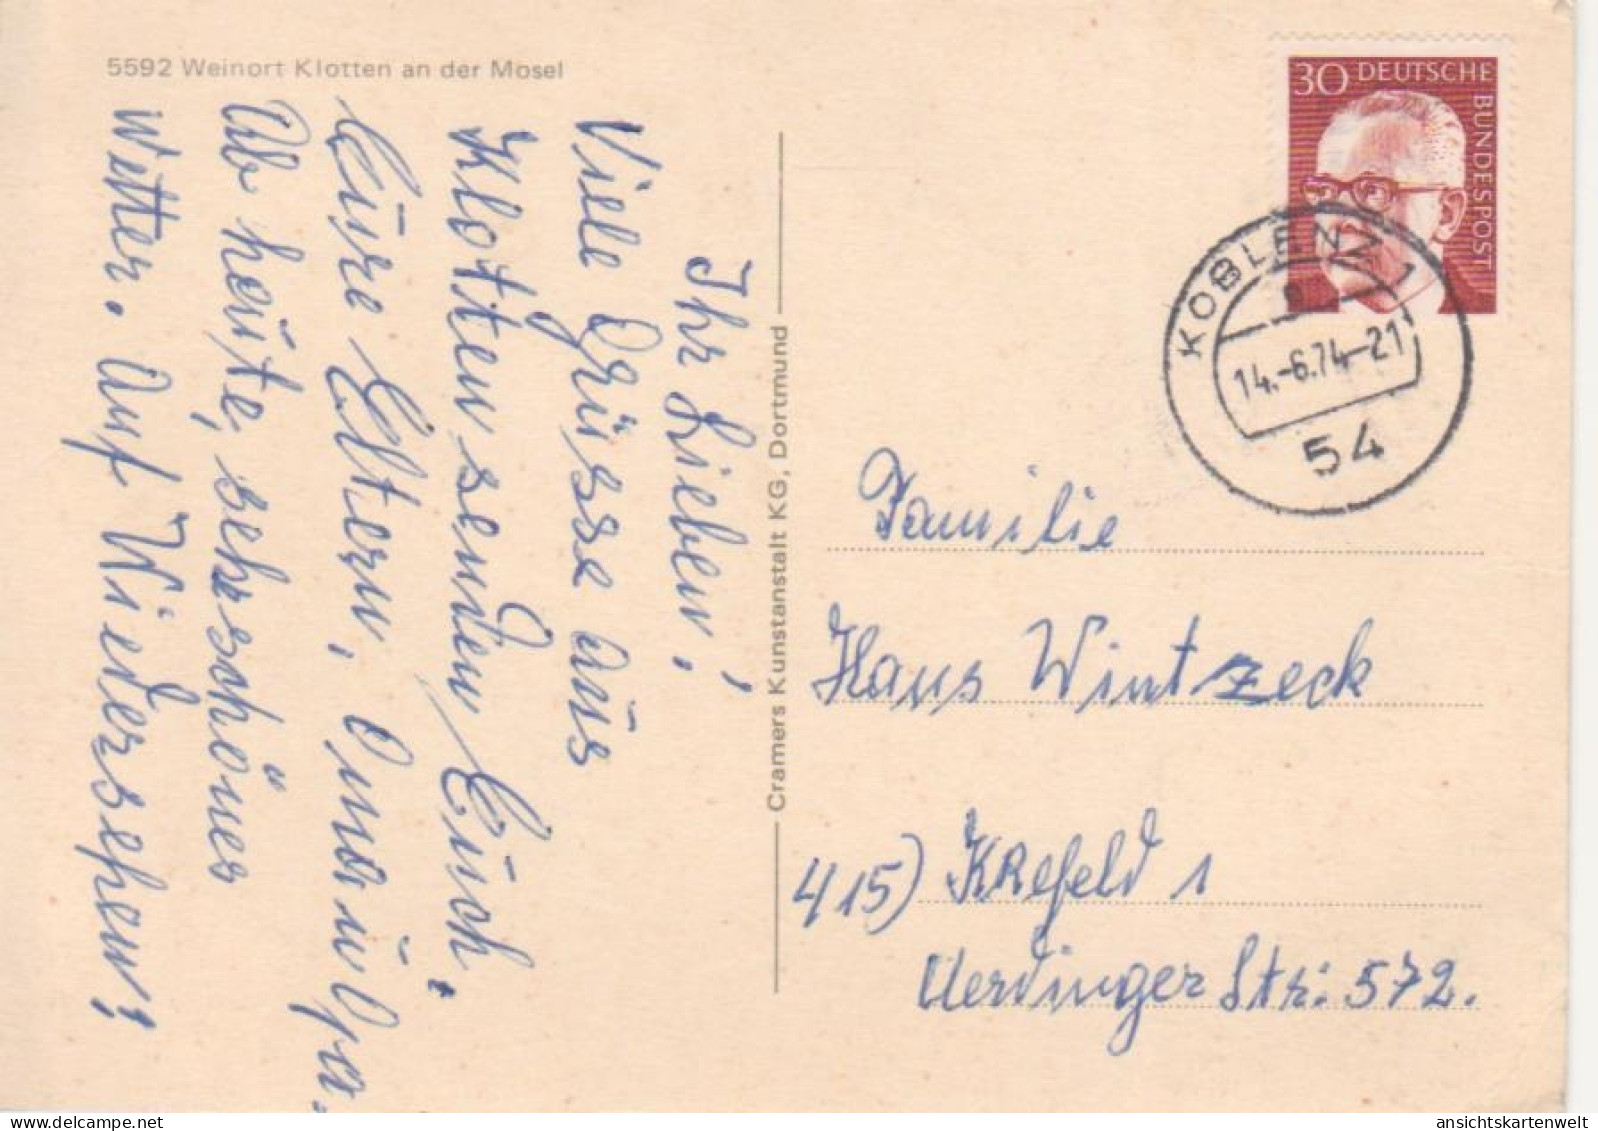 5592 Weinort Klotten an der Mosel
Ihr Lieben!
Viele Grüsse aus
Klotten senden Euch
Eure Eltern, Oma ü Opa.
Ab heute, sehr schönes
Wetter. Auf Wiedersehen!
Cramers Kunstanstalt KG, Dortmund
30 DEUTSCHE
BUNDESPOST
KOBLENZ 1
14.-6.74-21
54
Familie
Hans Wintzeck
415) Krefeld 1
Uerdinger Str: 572.
delcampe.net
ansichtskartenwelt